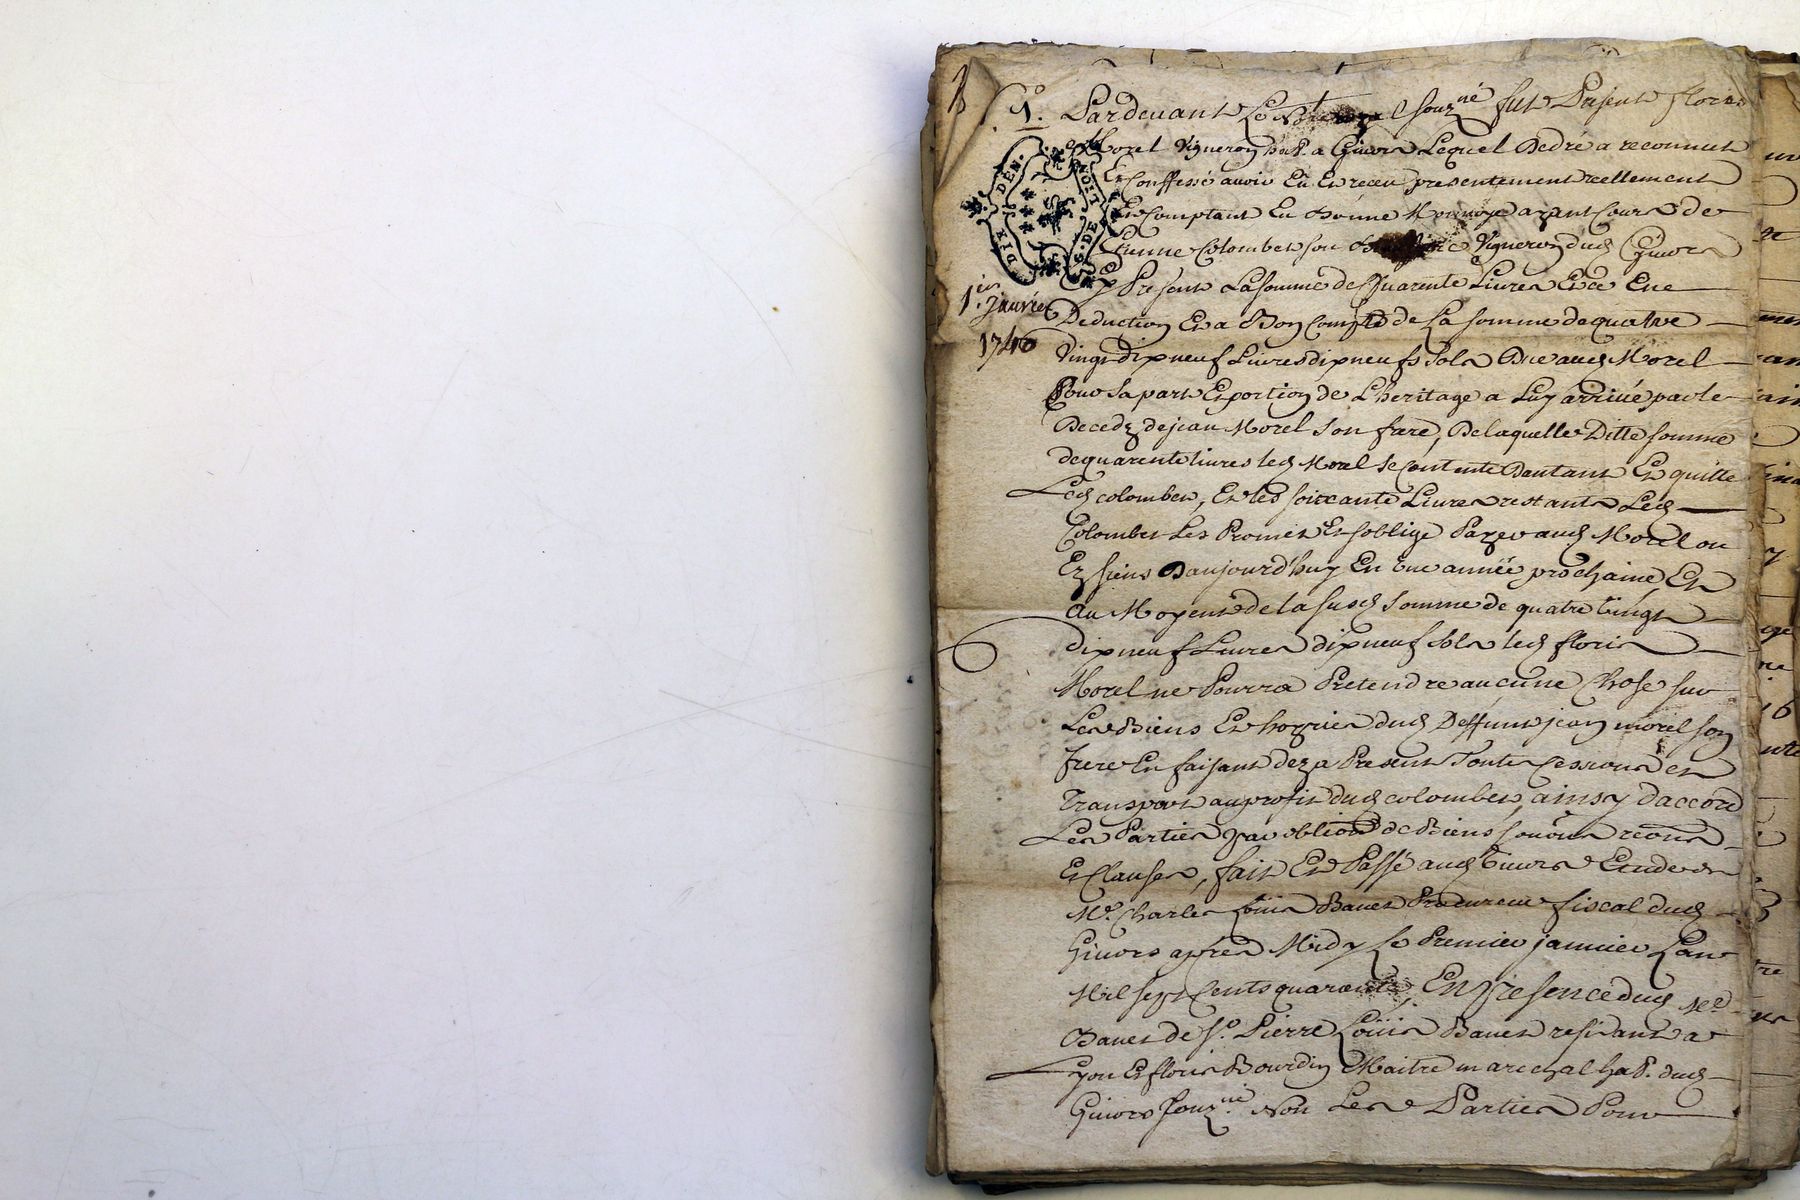 1.o Pardevant Le No.re Royal souz.né fut Présent floris
Morel Vigneron hab. a Givors Lequel Degré a reconnut
Et Conffessé avoir Eu Et receu presentement reellement
Et Comptant En Bonne Monnoye ayant Cours de
Etienne Colombet son Vigneron dud Givors
Cy Présent La somme de Quarente Livres Et ce Ene
Deduction Et a Bon Compte de La somme de quatre
Vingt dix neuf Livres dix neufs sols Due aud Morel
Pour sa part Et portion de L'heritage a Luy arrivé par le
Decedz de jean Morel son fare, De laquelle Ditte somme
de quarente livres led Morel se Contente Dautant Et quitte
Led colombet, Et les soixcante Livres restants Led
Colombet Les Promet Et soblige Payer aud Morel ou
Ez siens Daujourd'huy En une année prochaine, Et
Au Moyens de la susd somme de quatre Vingt
dix neuf Livres dix neuf sols led floris
Morel ne Pourra Pretendre aucune Chose sur
Les Biens Et hoyries dud Deffunt jean morel son
frere En faisant dez a Present Toutes Cessions et
Transport au profit dud colombet, ainsy d'accord
Les Parties par oblion de Biens
Et Clauses, fait Et Passé aud Givors Etude de
Me. Charles Loüis Bavet Procureur fiscal dud
Givors aprés Midy Le Premier janvier L'an
Mil sept Cents quarante, En présence dud Me.
Bavet de Sr. Pierre Loüis Bavet residant a
Lyon Et floris Bourdin Maitre marechal hab. dud
Givors souz.né Non Les Parties Pour
1.ier
Janvier
1740
DE DEN.
G. DE LION